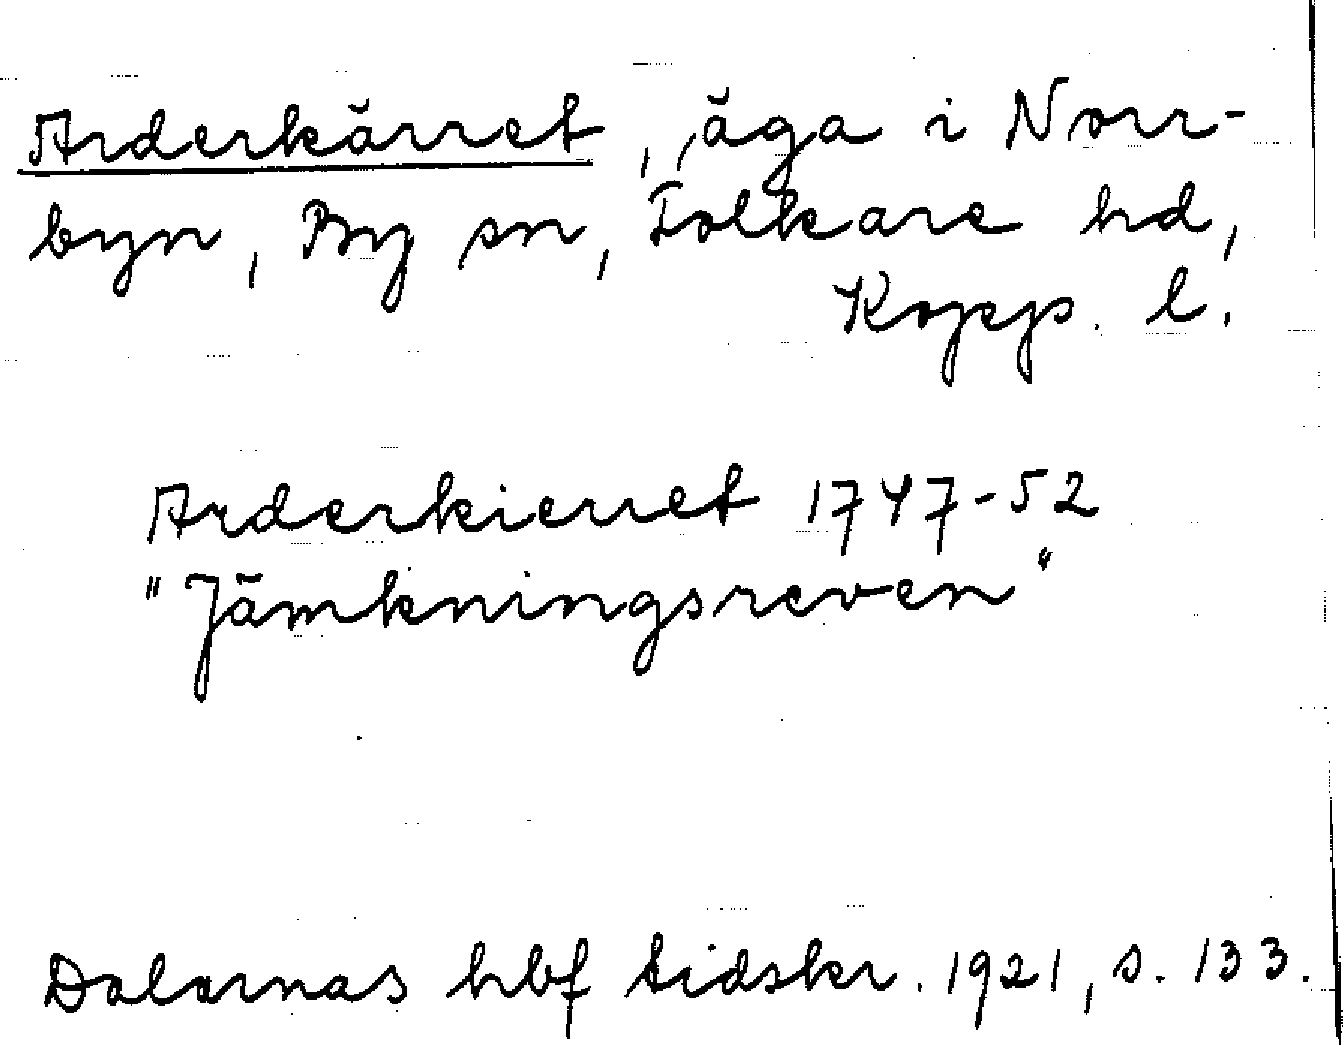 Arderkärret, äga i Norr-
byn, By sn, Folkare hd,
Kopp. l.
Arderkierret 1747-52
"Jämkningsreven"
Dalarnas hbf tidskr. 1921, s. 133.